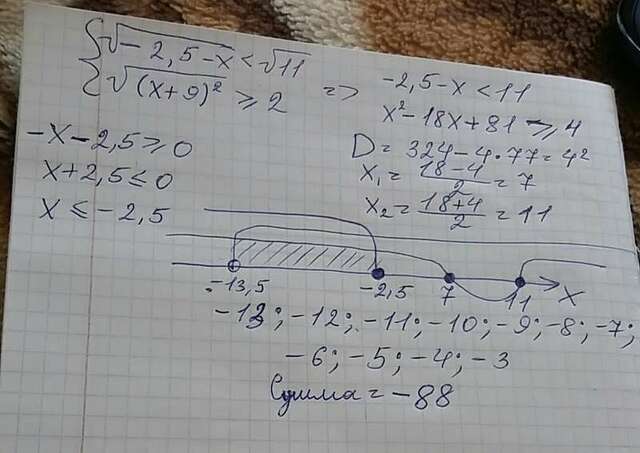 { √(-2,5-x) < √11
{ √((x+9)²) ≥ 2
=> -2,5-x < 11
x²-18x+81 ≥ 4
-x-2,5 ≥ 0
x+2,5 ≤ 0
x ≤ -2,5
D = 324-4·77 = 4²
x₁ = (18-4)/2 = 7
x₂ = (18+4)/2 = 11
-13,5 -2,5 7 11 X
-13; -12; -11; -10; -9; -8; -7;
-6; -5; -4; -3
Сумма = -88